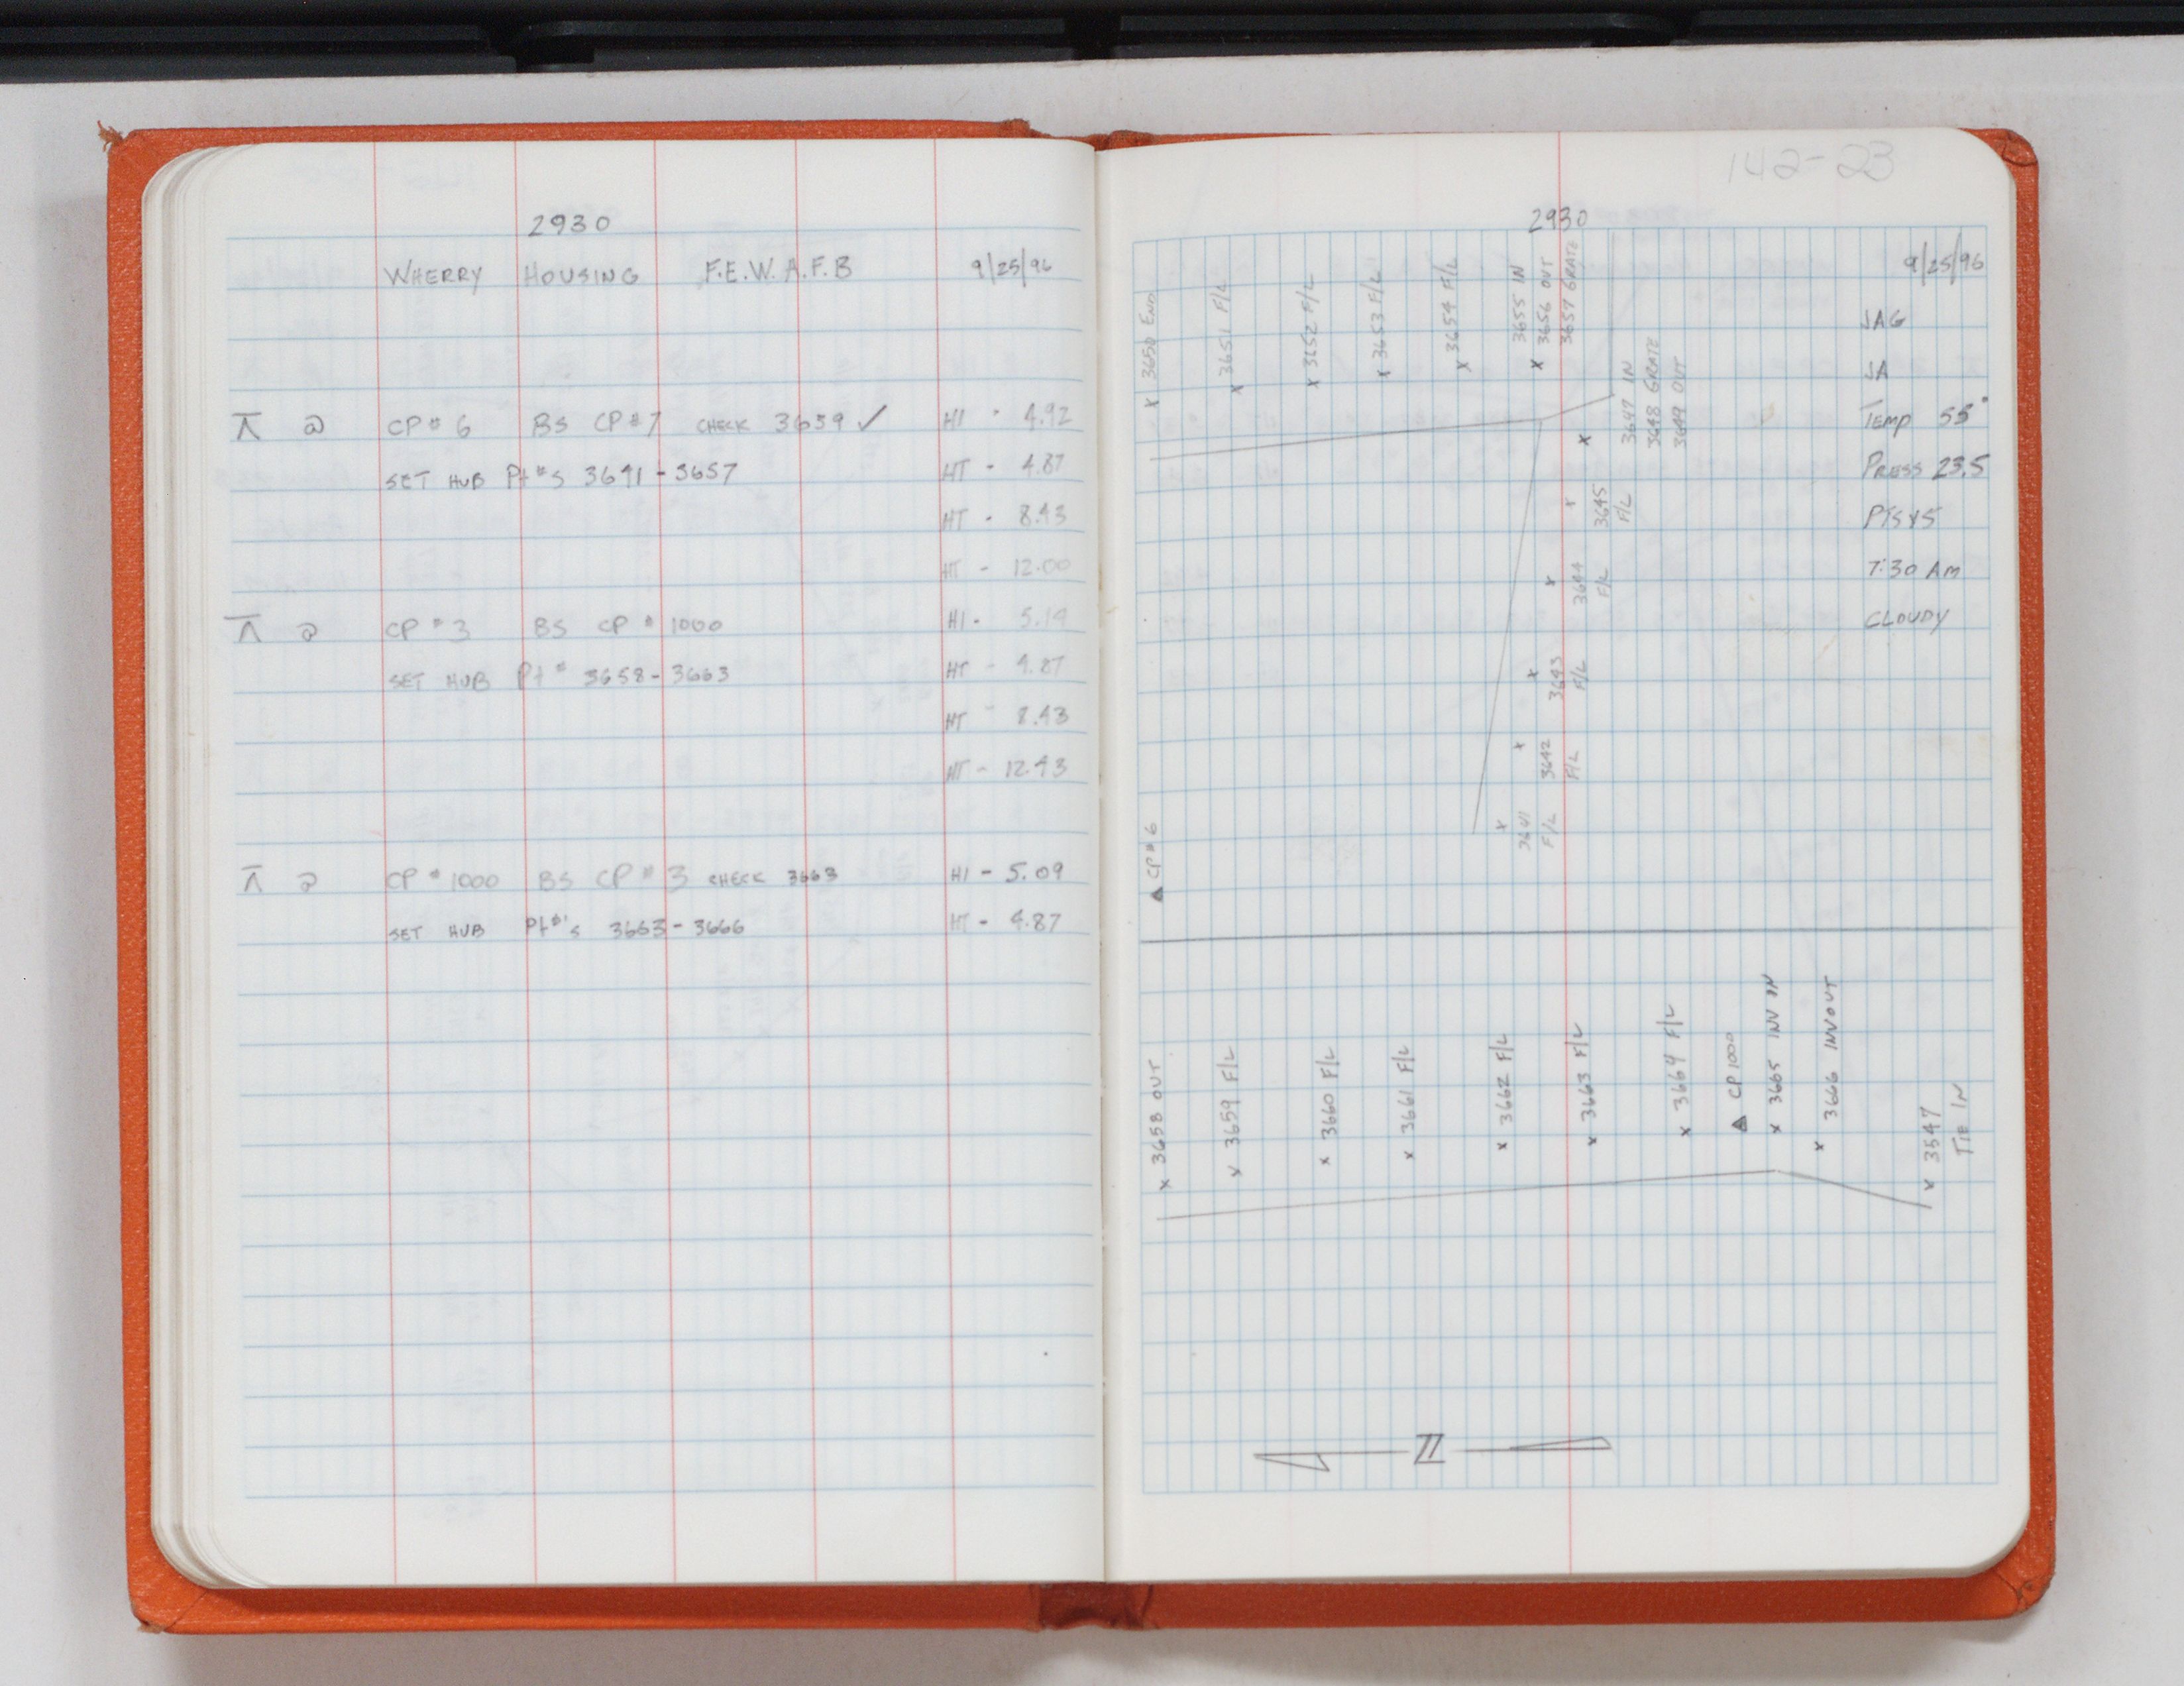 2930
WHERRY HOUSING F.E.W.A.F.B 9/25/96
⊼ @ CP#6 BS CP#7 CHECK 3639 ✓ HI - 4.92
SET HUB Pt#s 3641-3657 HT - 4.87
HT - 8.43
HT - 12.00
⊼ @ CP#3 BS CP#1000 HI - 5.14
SET HUB Pt# 3658-3663 HT - 4.87
HT - 8.43
HT - 12.43
⊼ @ CP#1000 BS CP#3 CHECK 3663 HI - 5.09
SET HUB Pt#'s 3663-3666 HT - 4.87
142-23
2930
9/25/96
JAG
JA
TEMP 55°
PRESS 23.5
7:30 AM
CLOUDY
x 3650 END
x 3651 F/L
x 3652 F/L
x 3653 F/L
x 3654 F/L
3655 IN
x 3656 OUT
3657 GRATE
x 3647 IN
3648 GRATE
3649 OUT
x 3645
F/L
x 3644
F/L
x 3643
F/L
x 3642
F/L
x 3641
F/L
▲ CP#6
x 3658 OUT
x 3659 F/L
x 3660 F/L
x 3661 F/L
x 3662 F/L
x 3663 F/L
x 3664 F/L
▲ CP 1000
x 3665 INV IN
x 3666 INV OUT
x 3547
TIE IN
N